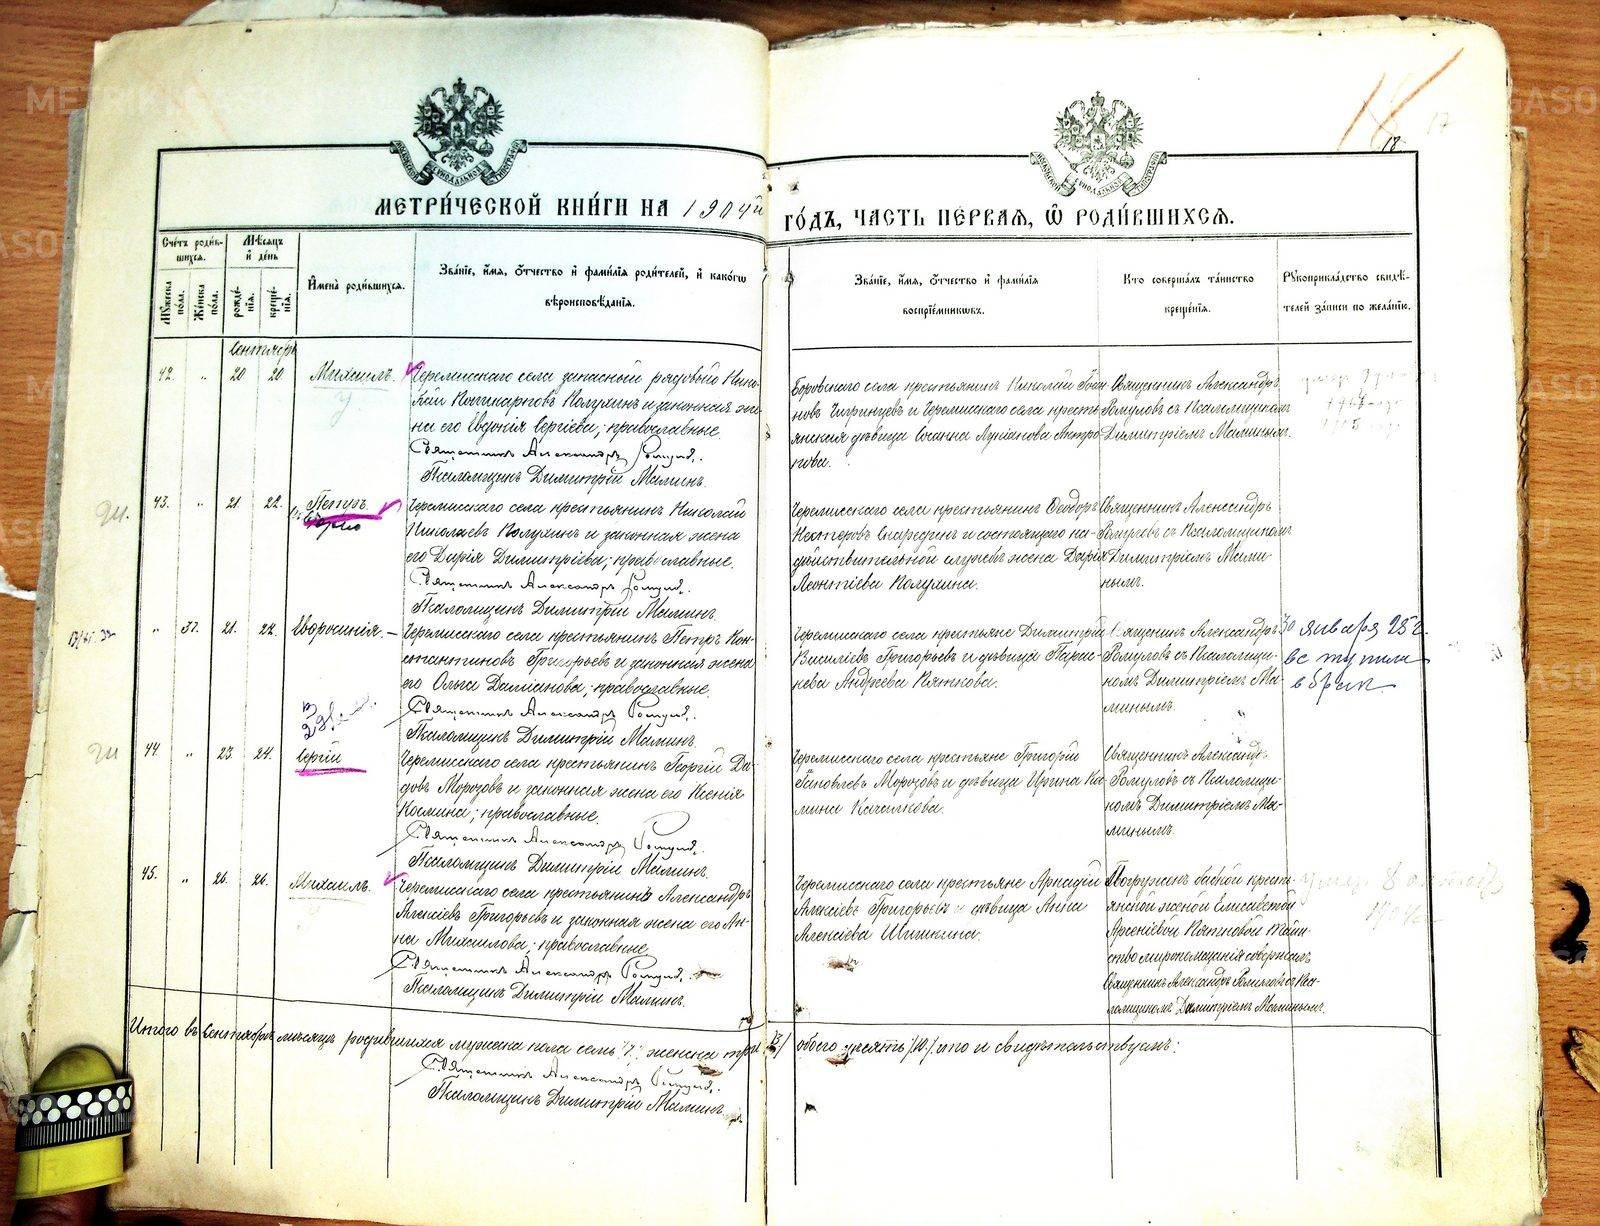 МЕТРИ́ЧЕСКОЙ КНИ́ГИ НА 1904й ГО́ДЪ, ЧАСТЬ ПЕ́РВАЯ, Ѿ РОДИ́ВШИХСЯ.
18
Сче́тъ роди́вшихся.
Му́жеска по́ла.
Же́нска по́ла.
Мѣ́сяцъ и де́нь
рожде́нія.
креще́нія.
Имена̀ роди́вшихся.
Зва́ніе, и́мя, о́тчество и фами́лія роди́телей, и како́гѡ
вѣроисповѣ́данія.
Зва́ніе, и́мя, о́тчество и фами́лія
воспріе́мникѡвъ.
Кто соверша́лъ та́инство
креще́нія.
Рукоприкла́дство свидѣ́-
телей за́писи по жела́нію.
Сентябрь
42. " 20 20. Михаилъ.
Черемисскаго села запасный рядовой Нико-
лай Полухинъ и законная же-
на его Евдокія Сергіева; православные.
Священникъ Александръ Ромулов.
Псаломщикъ Димитрій Маминъ.
Боровскаго села крестьянинъ Николай
новъ Чигринцевъ и Черемисскаго села кресть-
янская дѣвица
Священникъ Александръ
Ромуловъ съ Псаломщикомъ
Димитріемъ Маминымъ.
43. " 21. 22.
Черемисскаго села крестьянинъ Николай
Николаевъ Полухинъ и законная жена
его Дарія Димитріева; православные.
Священникъ Александръ Ромулов.
Псаломщикъ Димитрій Маминъ.
Черемисскаго села крестьянинъ Ѳеодоръ
Нестеровъ и состоящаго на
дѣйствительной службѣ жена Дарія
Леонтіева Полухина.
Священникъ Александръ
Ромуловъ съ Псаломщикомъ
Димитріемъ Мами-
нымъ.
" 37. 21. 22. Евросинія. –
Черемисскаго села крестьянинъ Петръ Кон-
стантиновъ Григорьевъ и законная жена
его Ольга Даміанова; православные.
Священникъ Александръ Ромулов.
Псаломщикъ Димитрій Маминъ.
Черемисскаго села крестьяне Димитрій
Василіевъ Григорьевъ и дѣвица Парас-
кева Андреева Пяткова.
Священникъ Александръ
Ромуловъ съ Псаломщи-
комъ Димитріемъ Ма-
минымъ.
30 января 25 г.
вступила
в брак
44. " 23. 24. Сергій
Черемисскаго села крестьянинъ Георгій Да-
довъ Морозовъ и законная жена его Ксенія
Космина; православные.
Священникъ Александръ Ромулов.
Псаломщикъ Димитрій Маминъ.
Черемисскаго села крестьяне Григорій
Морозовъ и дѣвица Ирина Кос-
мина Качалкова.
Священникъ Александръ
Ромуловъ съ Псаломщи-
комъ Димитріемъ Ма-
минымъ.
45. " 26. 26. Михаилъ.
Черемисскаго села крестьянинъ Александръ
Алексіевъ Григорьевъ и законная жена его Ан-
на Михаилова; православные
Священникъ Александръ Ромулов.
Псаломщикъ Димитрій Маминъ.
Черемисскаго села крестьяне Аркадій
Алексіевъ Григорьевъ и дѣвица Анна
Алексіева Шишкина.
Погруженъ бабкой кресть-
янской женой Елисаветой
Арсеніевой Пятковой таин-
ство мѵропомазанія совершилъ
Священникъ Александръ Ромуловъ съ Пса-
ломщикомъ Димитріемъ Маминымъ.
Итого въ Сентябрѣ мѣсяцѣ родившихся мужска пола семь /7./ женска три /3/ обоего десять /10./ что и свидѣтельствуемъ:
Священникъ Александръ Ромулов.
Псаломщикъ Димитрій Маминъ